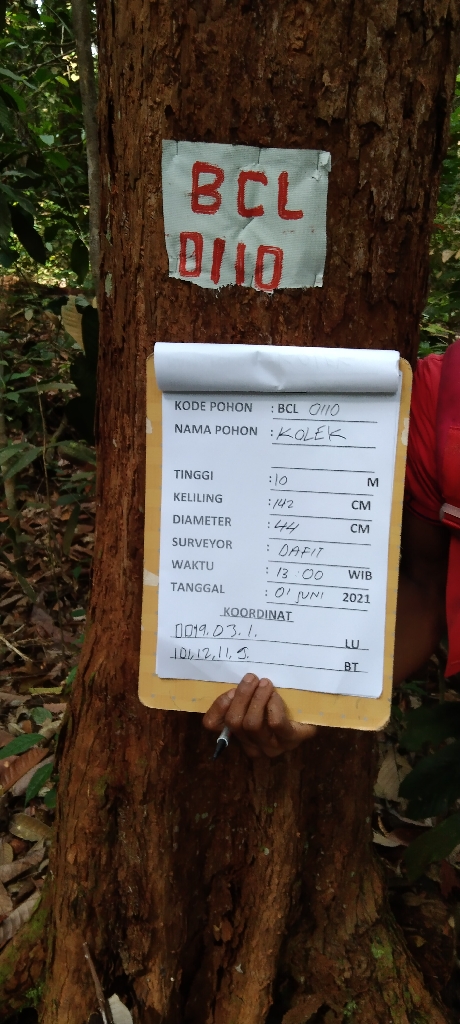 BCL
0110
KODE POHON : BCL 0110
NAMA POHON : KOLEK
TINGGI : 10 M
KELILING : 142 CM
DIAMETER : 44 CM
SURVEYOR : DAFIT
WAKTU : 13.00 WIB
TANGGAL : 01 JUNI 2021
KOORDINAT
0019.03.1. LU
101,12,11.9. BT